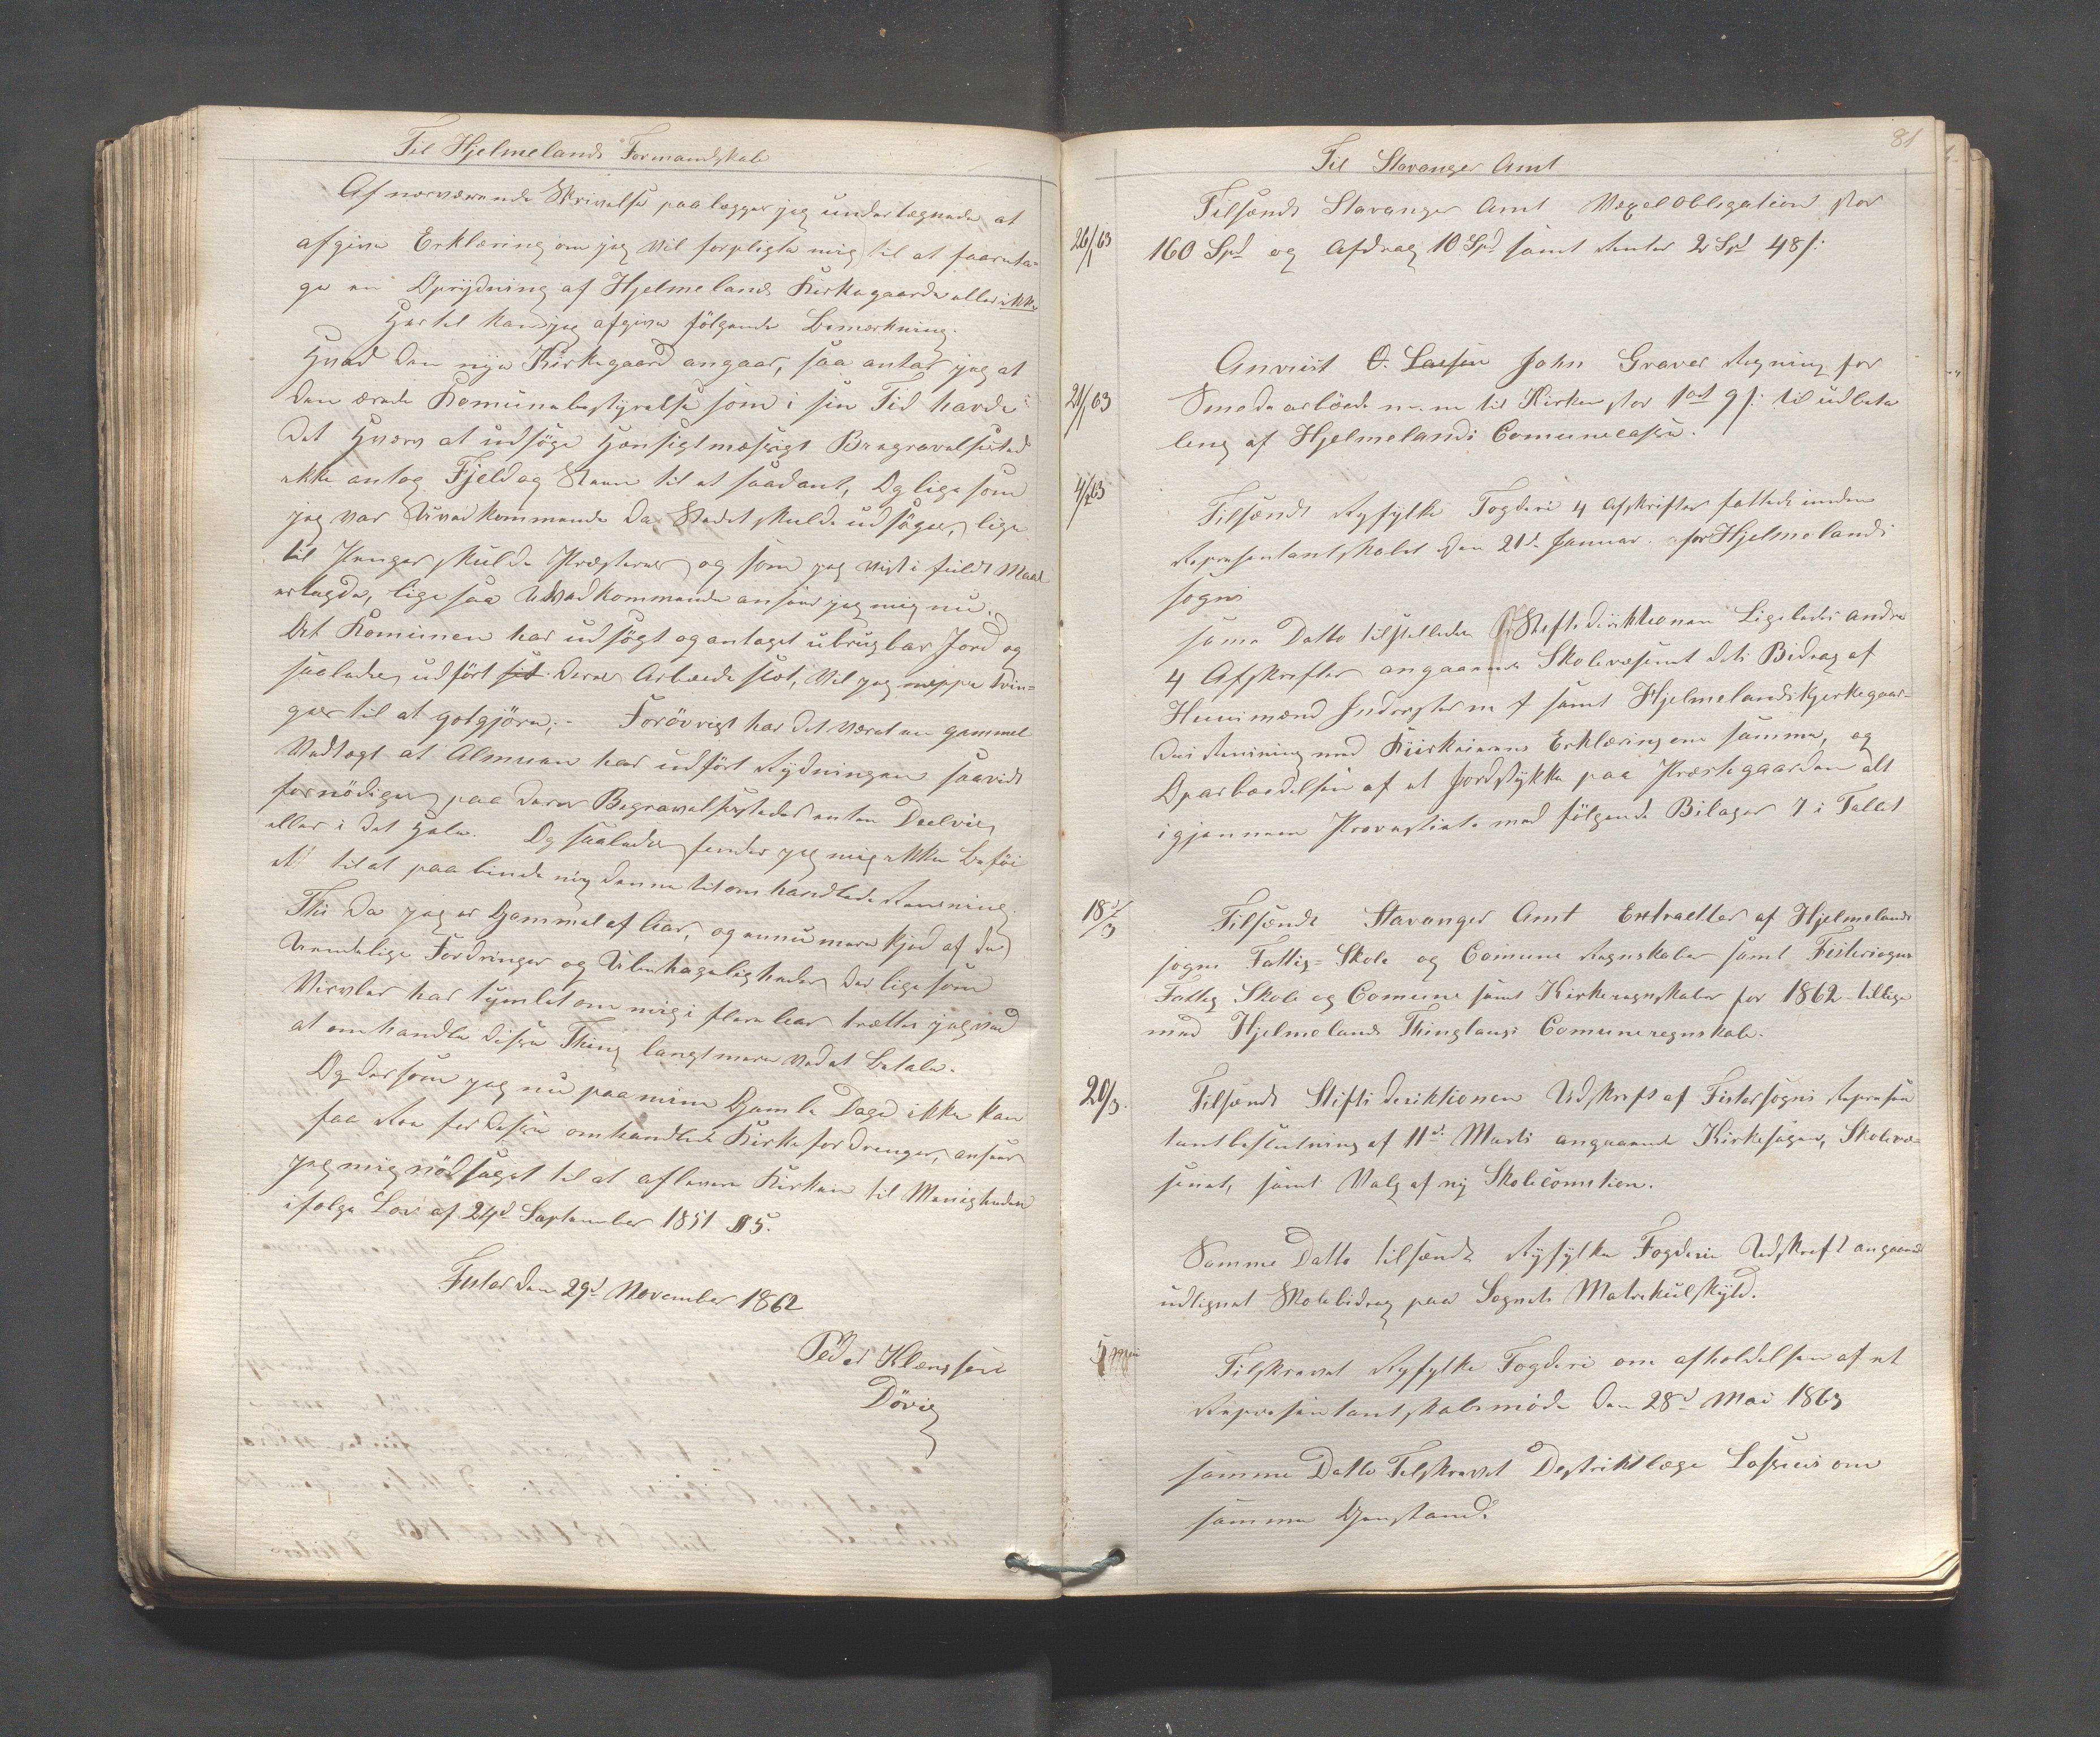 Til Hjelmelands Formandskab
Af nærværende Skrivelse paalægger jeg undertegnede at
afgive Erklæring om jeg vil forpligte mig til at foareta-
ge en Oprydning af Hjelmelands Kirkegaarde eller ikke
Hertil kan jeg afgive følgende Bemærkning.
Hvad den nye Kirkegaard angaar, saa antar jeg at
den ærede Komunebestyrelse som i sin Tid havde
det Hværv at udsøge Hensigtmæssigt Bregravelsested
ikke antog Fjeld og Steen til et saadant, Og lige som
jeg var Uvedkommende da Stedet skulde udsøges, lige
til Penger skulde Præsteres og som jeg vist i fuldt Maal
erlagde, lige saa Uvedkommende anseer jeg mig nu.
Det Komunen har udsøgt og antaget ubrugbar Jord og
saaledes udført sit deres Arbeide slet, vil jeg neppe tvin-
ges til at gotgjøre;- Forøvrigt har det været en gammel
Vedtægt at Almuen har udført Rydningen saavidt
fornødiges paa deres Begravelsessteder enten Deelvis,
eller i det Hele. Og saaledes finder jeg mig ikke beføi
et til at paabinde mig denne titomhandlede Rensning.
Thi da jeg er Gammel af Aar, og ennu mere kjed af de
Uendelige Fordringer og Ubehageligheder der lige som
Virvler har tumlet om mig i flere Aar trættes jeg ved
at omhandle disse Thing langt mere ved at betale.
Og dersom jeg nu paa mine Gamle Dage ikke kan
faa Roe for disse omhandlede Kirkefordrenger, anseer
jeg mig nødsaget til at aflevere Kirken til Menigheden
ifølge Lov af 24d September 1851 §5.
Fister den 29d November 1862
Peder Klængsen
Døvig
81
Til Stavanger Amt
26/1 63 Tilsendt Stavanger Amt Vexelobligation stor
160 Spd og Afdrag 10 Spd samt Renter 2 Spd 48 s:
21/1 63 Anviist O. Larsen John Graver Regning for
Smedearbeide m.m til Kirken stor 1 ort 9 s: til udbeta
ling af Hjelmelands Comunecasse.
4/2 63 Tilsendt Ryfylke Fogderi 4 Afskrifter fattede inden
Representantskabet den 21d Januar for Hjelmelands
sogn
same Datto tilstilledes Stiftsdiriktionen Ligeledes andre
4 Afskrifter angaaende Skolevæsenet dets Bidrag af
Huusmænd Inderster m f samt Hjelmelands Kjerkegaar-
des Rensning med Kirkeierens Erklæring om samme, og
Oparbeidelsen af et Jordstykke paa Præstegaarden alt
igjennem Provastiet med følgende Bilager 7 i Tallet
18/3 Tilsendt Stavanger Amt Extracter af Hjelmelands
sogns Fattig- Skole og Comune Regnskaber samt Fistersogns
Fattig Skole og Comune samt Kirkeregnskaber for 1862 tillige
med Hjelmelands Thinglaugs Comuneregnskab.
20/3. Tilsendt Stifts deriktionen Udskrift af Fistersogns Represen
tantbeslutning af 11d Marts angaaende Kirkesager, Skolevæ-
senet, samt Valg af ny Skolecomition.
Samme Datto tilsendt Ryfylke Fogderie Udskrift angaaende
udlignet Skolebidrag paa Sognets Matrikulskyld.
5 Mai Tilskrevet Ryfylke Fogderi om afholdelsen af et
Representantskabsmøde den 28d Mai 1863
samme Datto Tilskrevet Destriktlæge Lossius om
samme Gjenstand.